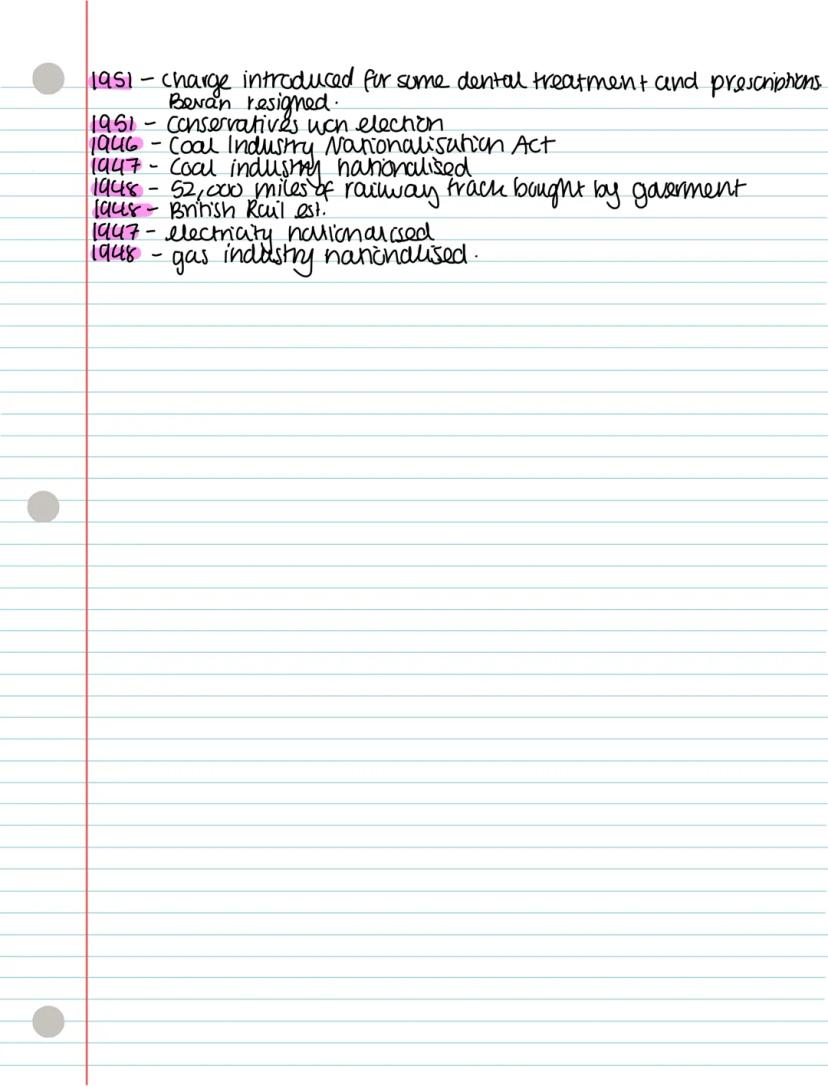 1951 - Charge introduced for some dental treatment and prescriptions.
Bevan resigned.
1951 - Conservatives won election
1946 - Coal Industry Nationalisation Act
1947 - Coal industry nationalised
1948 - 52,000 miles of railway track bought by goverment
1948 - British Rail est.
1947 - electricity nationalised
1948 - gas industry nationalised.